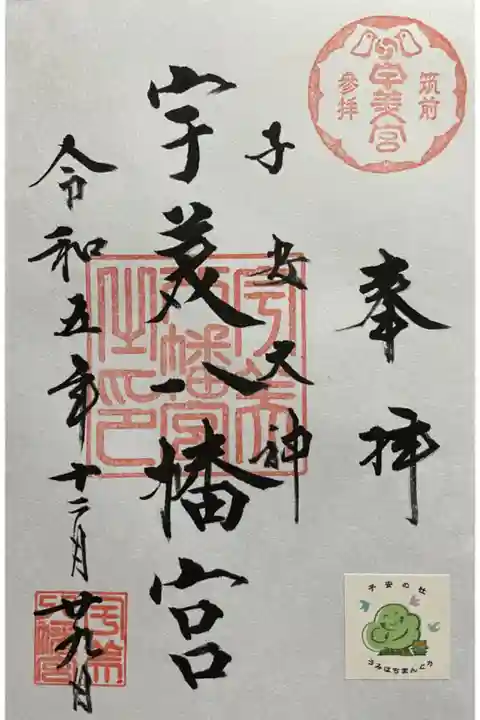 奉拝
筑前
宇美宮
參拝
子安大神
宇美八幡宮
宇美八幡宮之印
令和五年十二月廿九日
子安の杜
うみはちまんぐう